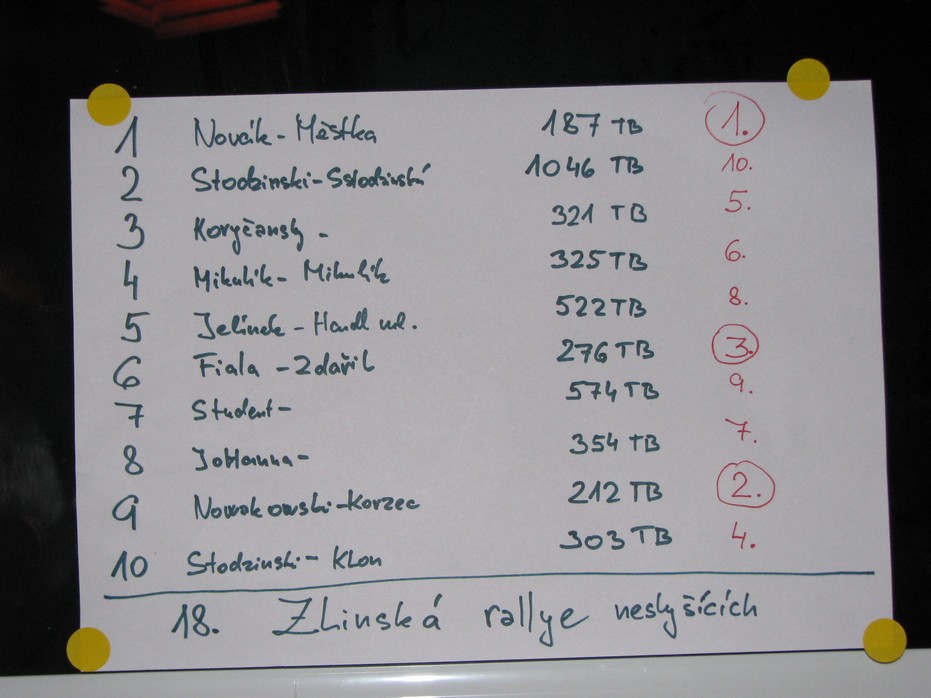 1 Novák - Měštka 187 TB 1.
2 Stodzinski - Sstodzinská 1046 TB 10.
3 Koryčanský - 321 TB 5.
4 Mikulík - Mikulík 325 TB 6.
5 Jelínek - Handl ml. 522 TB 8.
6 Fiala - Zdařil 276 TB 3.
7 Student - 574 TB 9.
8 JoHanna - 354 TB 7.
9 Nowakowski - Korzec 212 TB 2.
10 Stodzinski - Klon 303 TB 4.
18. Zlinská rallye neslyšících